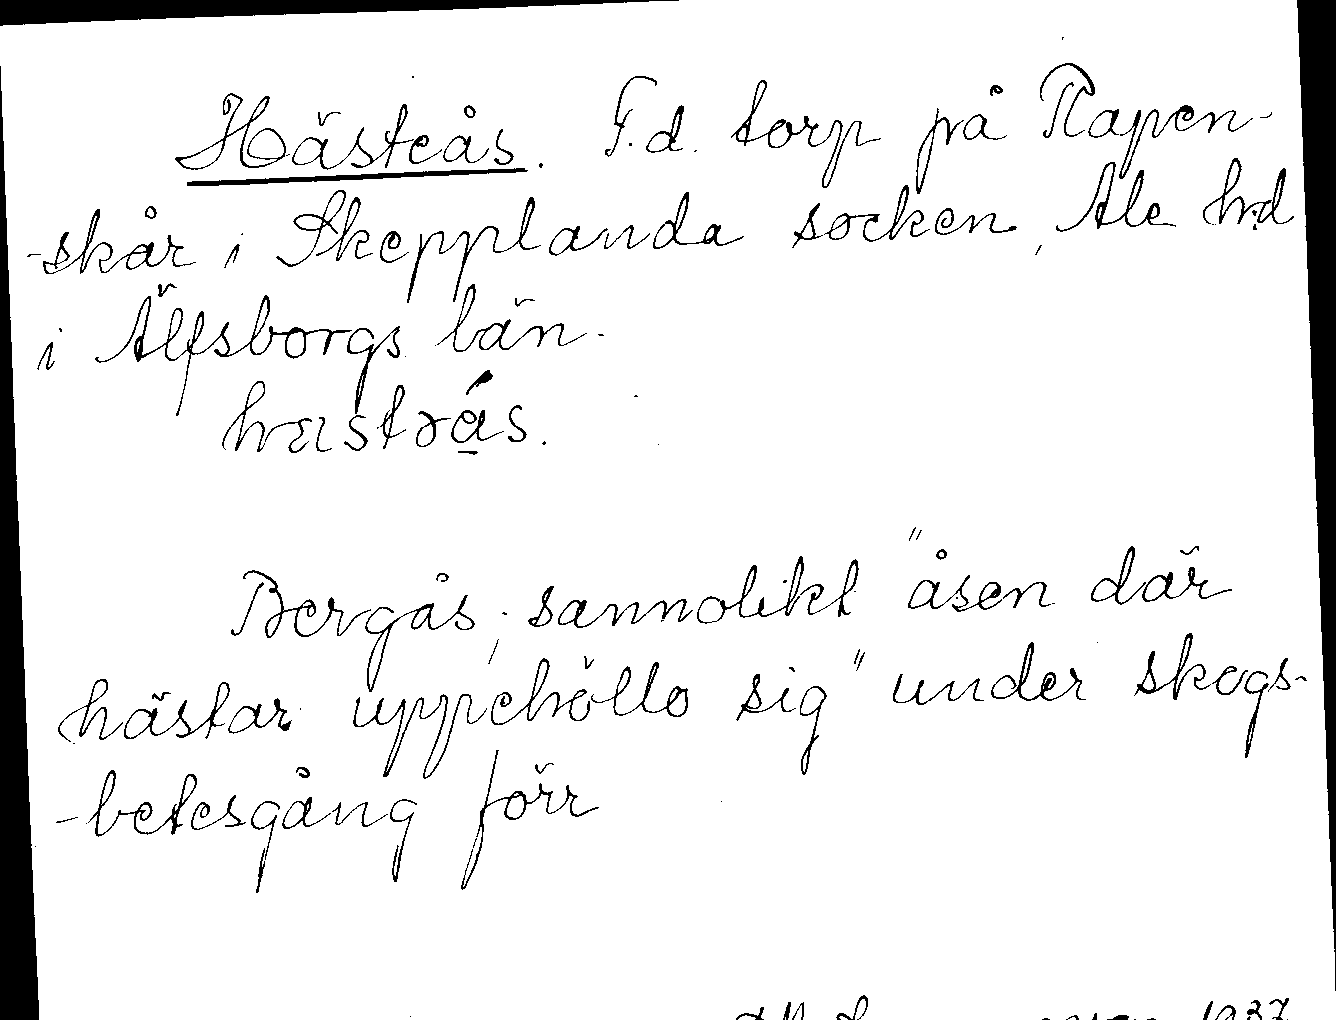 Hästeås. F.d. torp på Rapen-
-skår i Skepplanda socken, Ale hd
i Älfsborgs län.
hæstəás.
Bergås; sannolikt "åsen där
hästar uppehöllo sig" under skogs-
-betesgång förr
1937